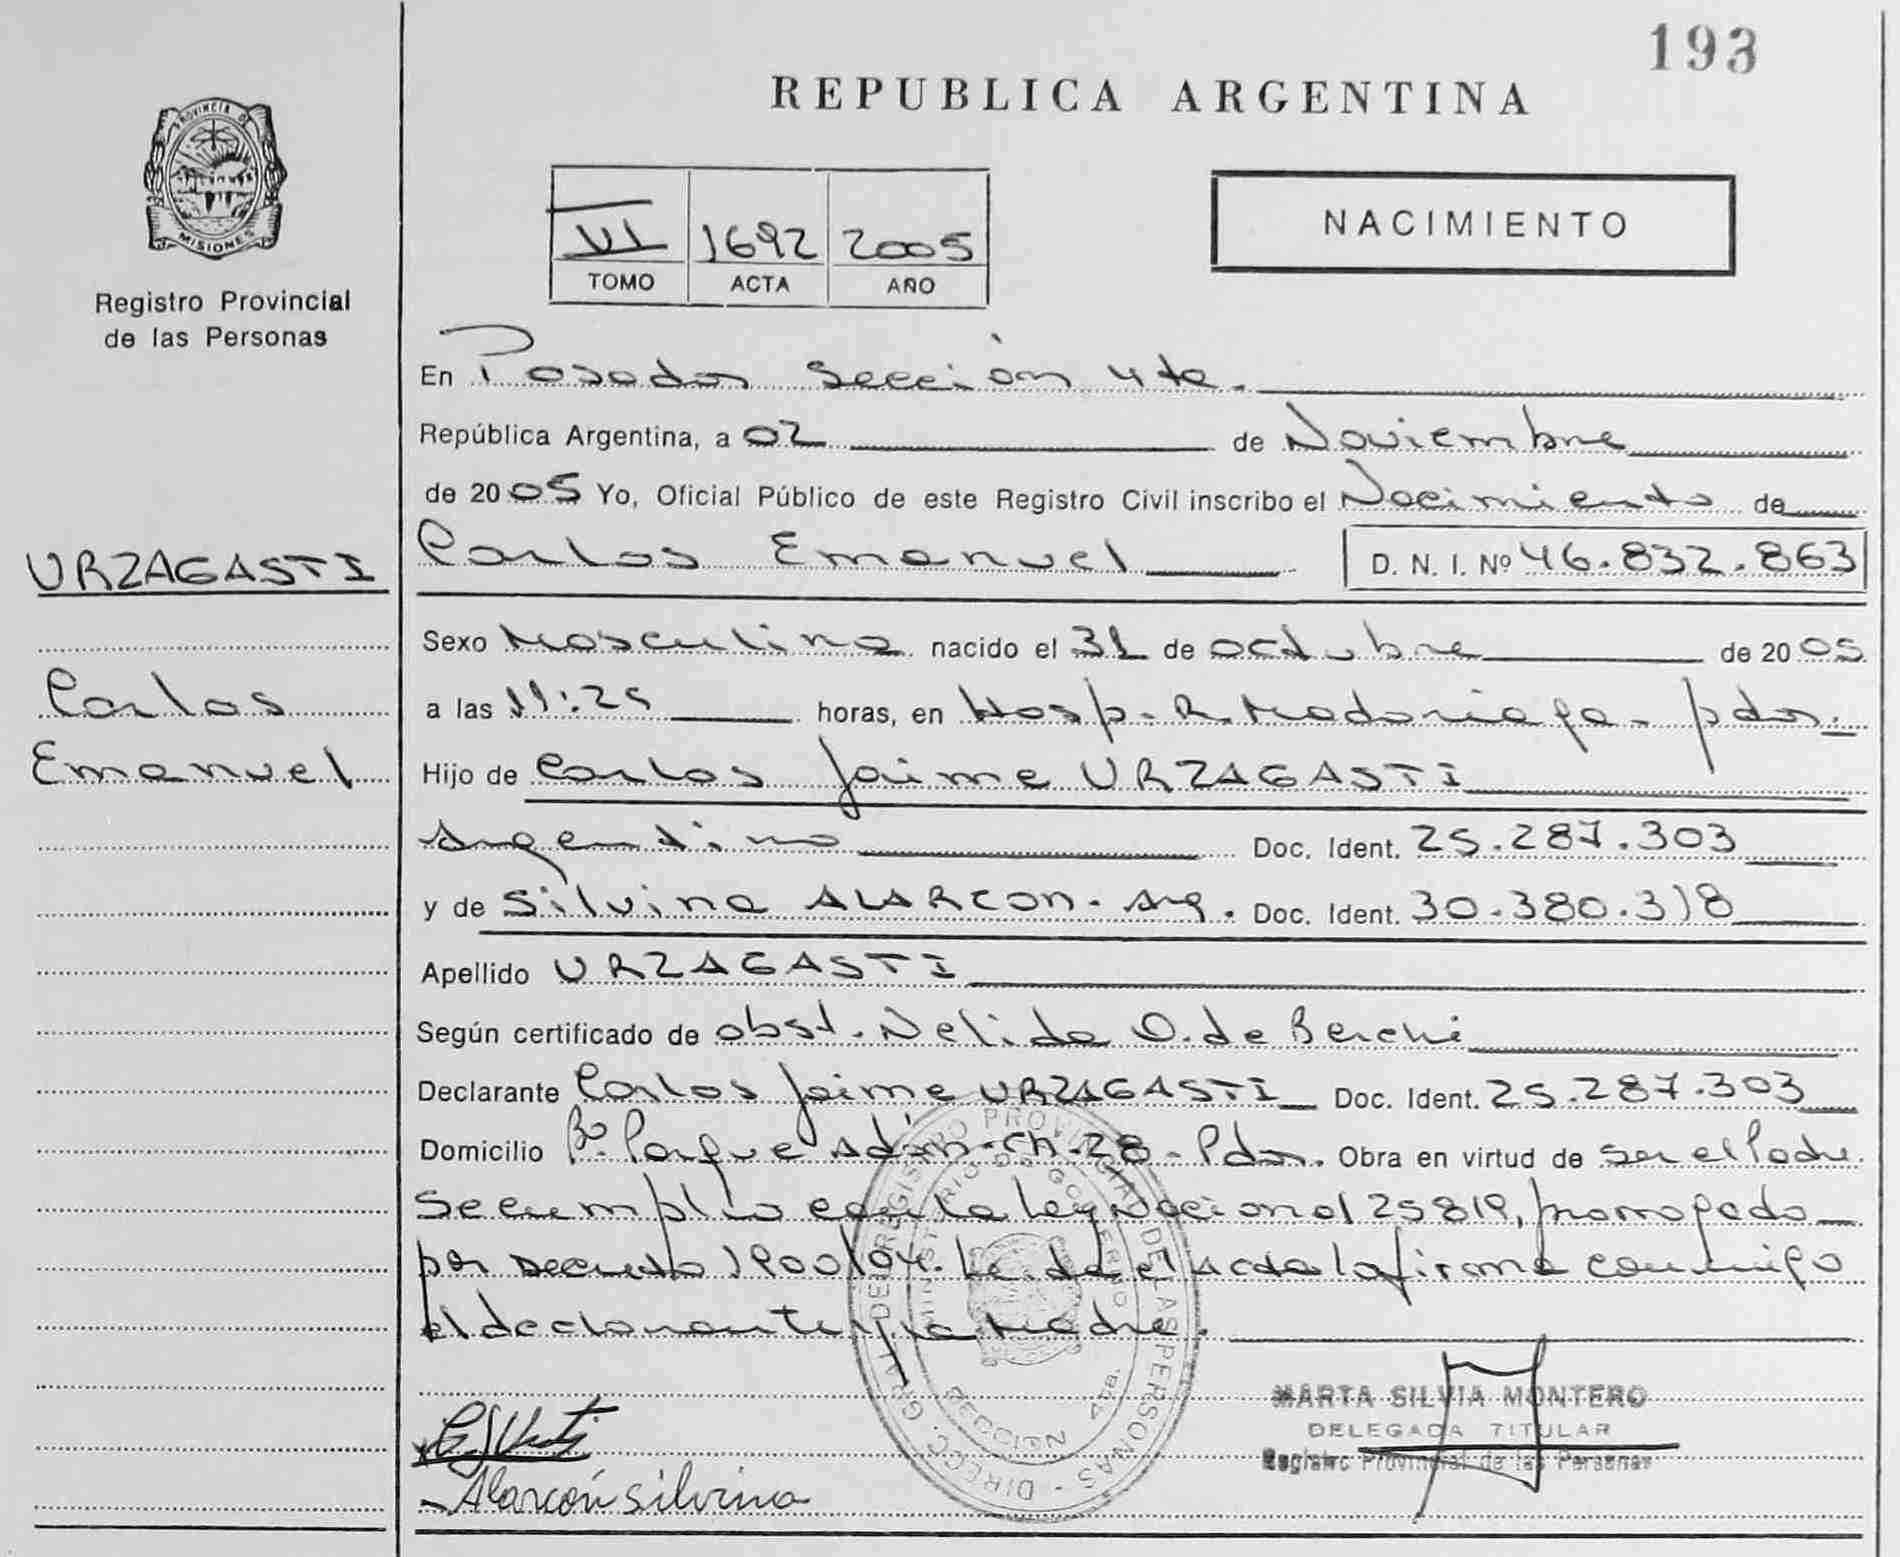 193
REPUBLICA ARGENTINA
PROVINCIA DE
MISIONES
Registro Provincial
de las Personas
VI 1692 2005
TOMO ACTA AÑO
NACIMIENTO
En Posadas Sección 4ta.
República Argentina, a 02 de Noviembre
de 2005 Yo, Oficial Público de este Registro Civil inscribo el Nacimiento de
URZAGASTI
Carlos Emanuel D. N. I. Nº 46.832.863
Sexo Masculino nacido el 31 de octubre de 2005
Carlos
a las 11:25 horas, en Hosp. R. Madariaga - pdas.
Emanuel
Hijo de Carlos Jaime URZAGASTI
Argentino Doc. Ident. 25.287.303
y de Silvina ALARCON - Arg. Doc. Ident. 30.380.318
Apellido URZAGASTI
Según certificado de obst. Nelida O. de Berchi
Declarante Carlos Jaime URZAGASTI Doc. Ident. 25.287.303
Domicilio Bº Parque Adam - Ch. 28 - Pdas. Obra en virtud de ser el Padre
Se cumplio con la ley Nacional 25819, prorrogado
por Decreto 1900/04. Leida el Acta la firma conmigo
el declarante y la Madre.
DIRECC. GRAL. DEL REGISTRO PROVINCIAL DE LAS PERSONAS
MINISTERIO DE GOBIERNO
SECCION 4ta.
MARTA SILVIA MONTERO
DELEGADA TITULAR
Registro Provincial de las Personas
Alarcón Silvina